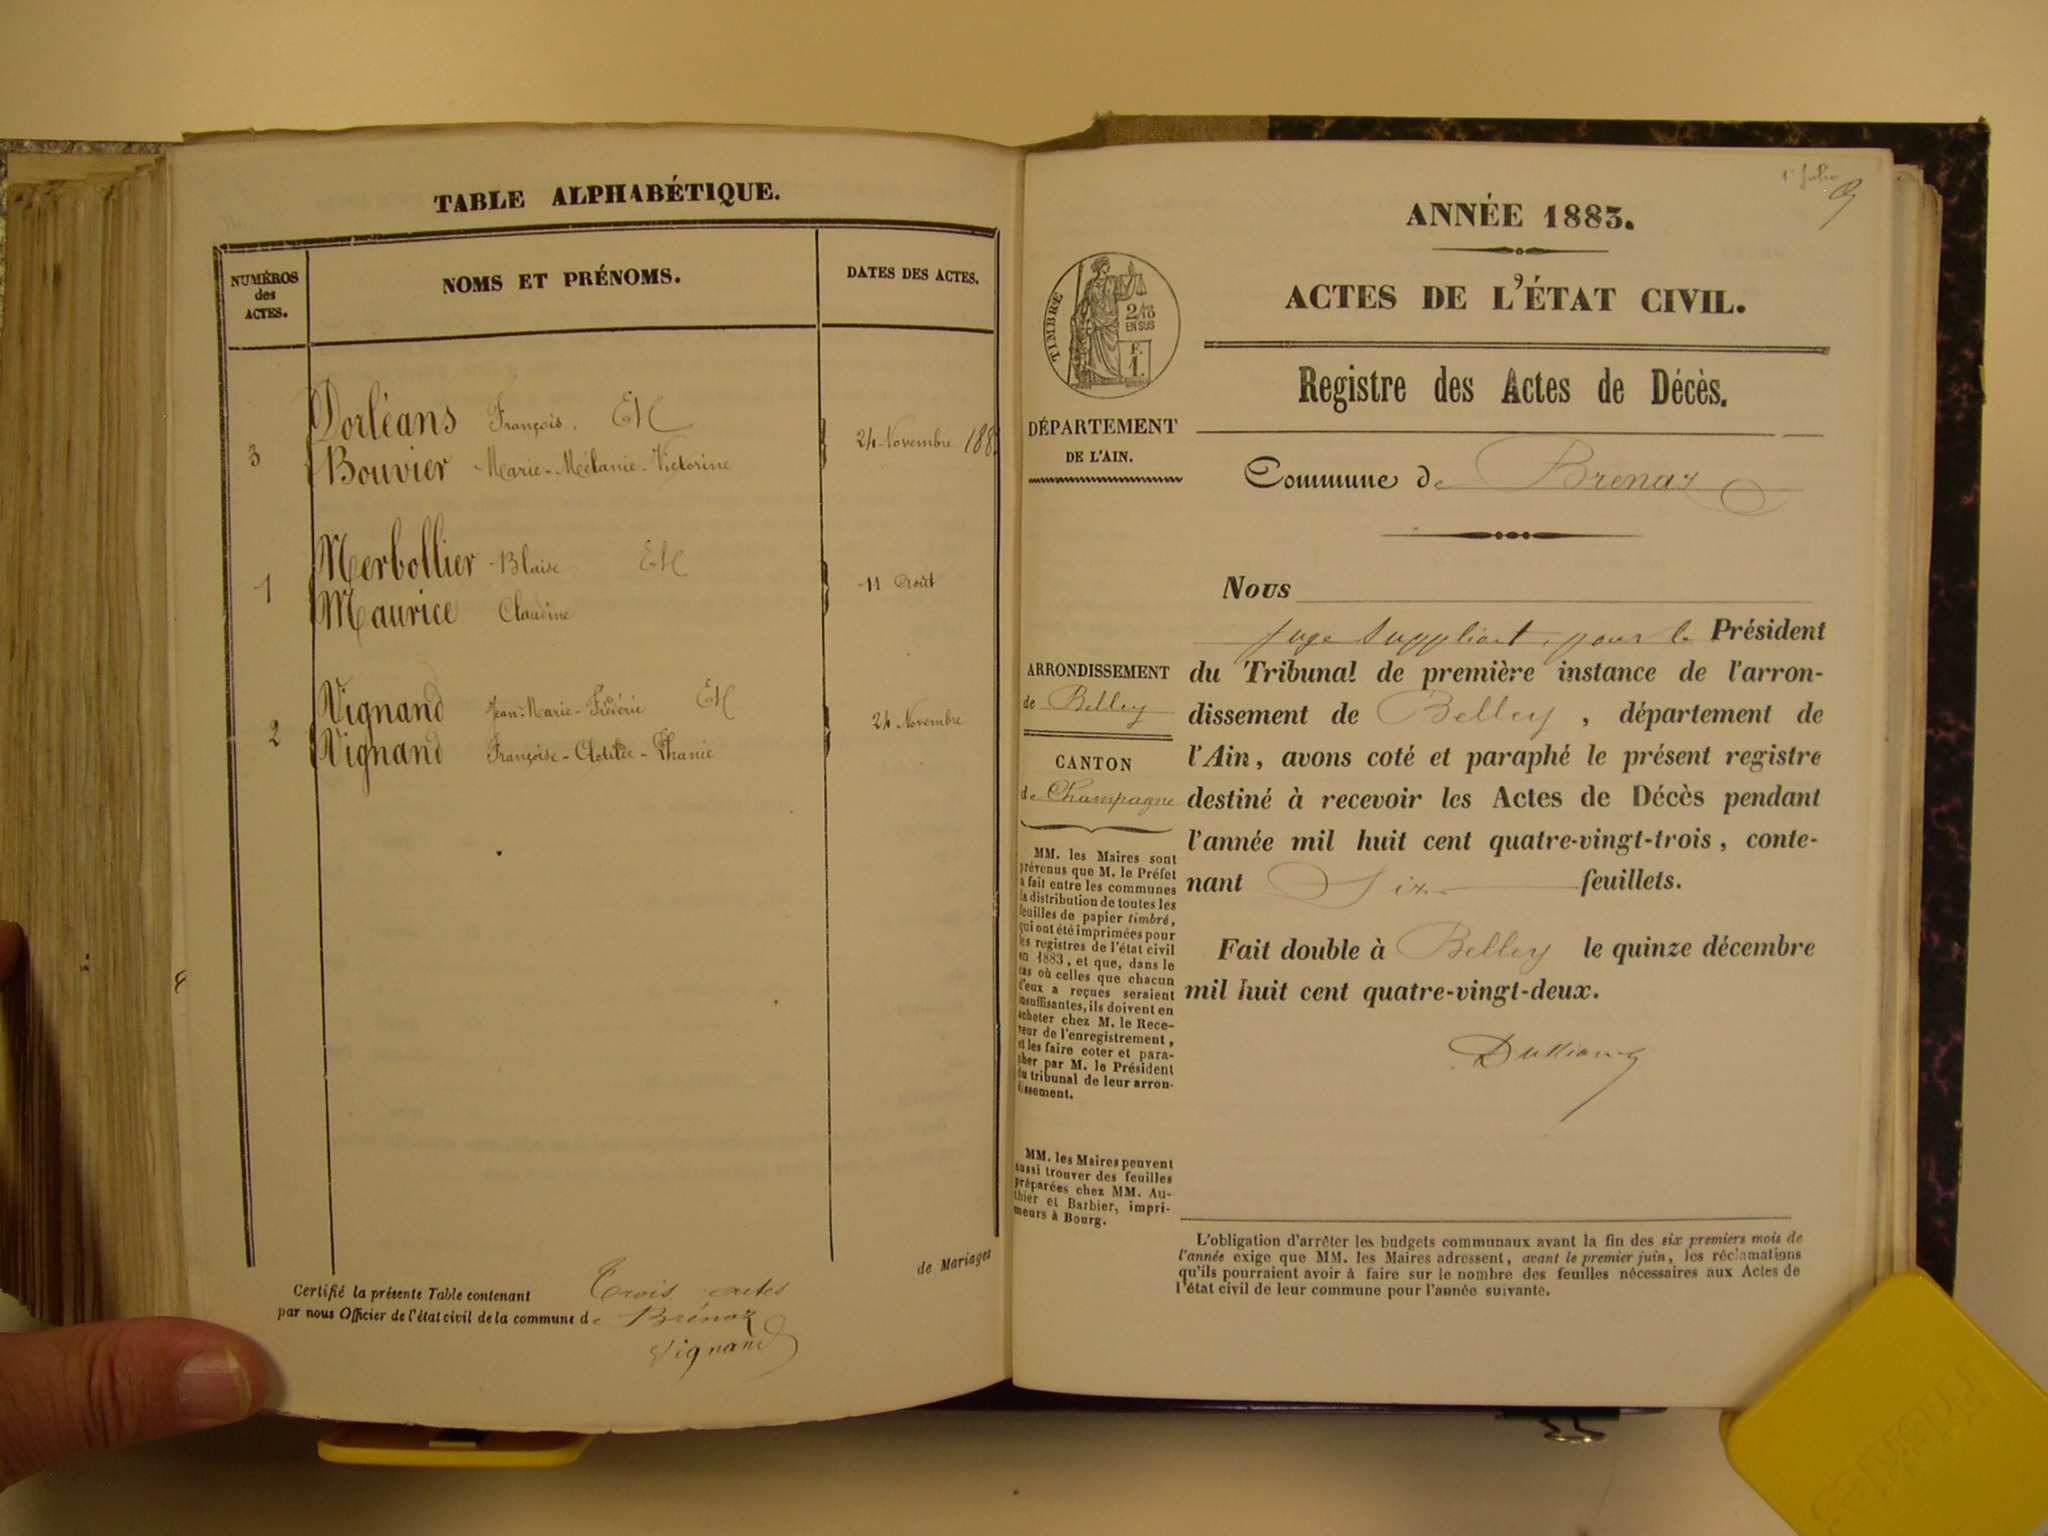 TABLE ALPHABÉTIQUE.
NUMÉROS
des
ACTES.
NOMS ET PRÉNOMS.
DATES DES ACTES.
Dorléans François. Et
3
24 Novembre 188
Bouvier Marie-Mélanie-Victorine
Merbollier Blaise Et
1
11 Août
Maurice Claudine
Vignand Jean-Marie-Frédéric Et
2
24 Novembre
Vignand Françoise-Clotilde-Phanie
de Mariages
Certifié la présente Table contenant Trois actes
par nous Officier de l'état civil de la commune de Brénaz
Vignand
1er folio
ANNÉE 1883.
ACTES DE L'ÉTAT CIVIL.
TIMBRE
2/10
EN SUS
F.
1.
Registre des Actes de Décès.
DÉPARTEMENT
DE L'AIN.
Commune de Brenaz
Nous
Juge Suppléant, pour le Président
du Tribunal de première instance de l'arron-
dissement de Belley, département de
l'Ain, avons coté et paraphé le présent registre
destiné à recevoir les Actes de Décès pendant
l'année mil huit cent quatre-vingt-trois, conte-
nant Six feuillets.
Fait double à Belley le quinze décembre
mil huit cent quatre-vingt-deux.
ARRONDISSEMENT
de Belley
CANTON
de Champagne
MM. les Maires sont
prévenus que M. le Préfet
a fait entre les communes
la distribution de toutes les
feuilles de papier timbré,
qui ont été imprimées pour
les registres de l'état civil
en 1883, et que, dans le
cas où celles que chacun
d'eux a reçues seraient
insuffisantes, ils doivent en
acheter chez M. le Rece-
veur de l'enregistrement,
et les faire coter et para-
pher par M. le Président
du tribunal de leur arron-
dissement.
MM. les Maires peuvent
aussi trouver des feuilles
préparées chez MM. Au-
thier et Barbier, impri-
meurs à Bourg.
L'obligation d'arrêter les budgets communaux avant la fin des six premiers mois de
l'année exige que MM. les Maires adressent, avant le premier juin, les réclamations
qu'ils pourraient avoir à faire sur le nombre des feuilles nécessaires aux Actes de
l'état civil de leur commune pour l'année suivante.